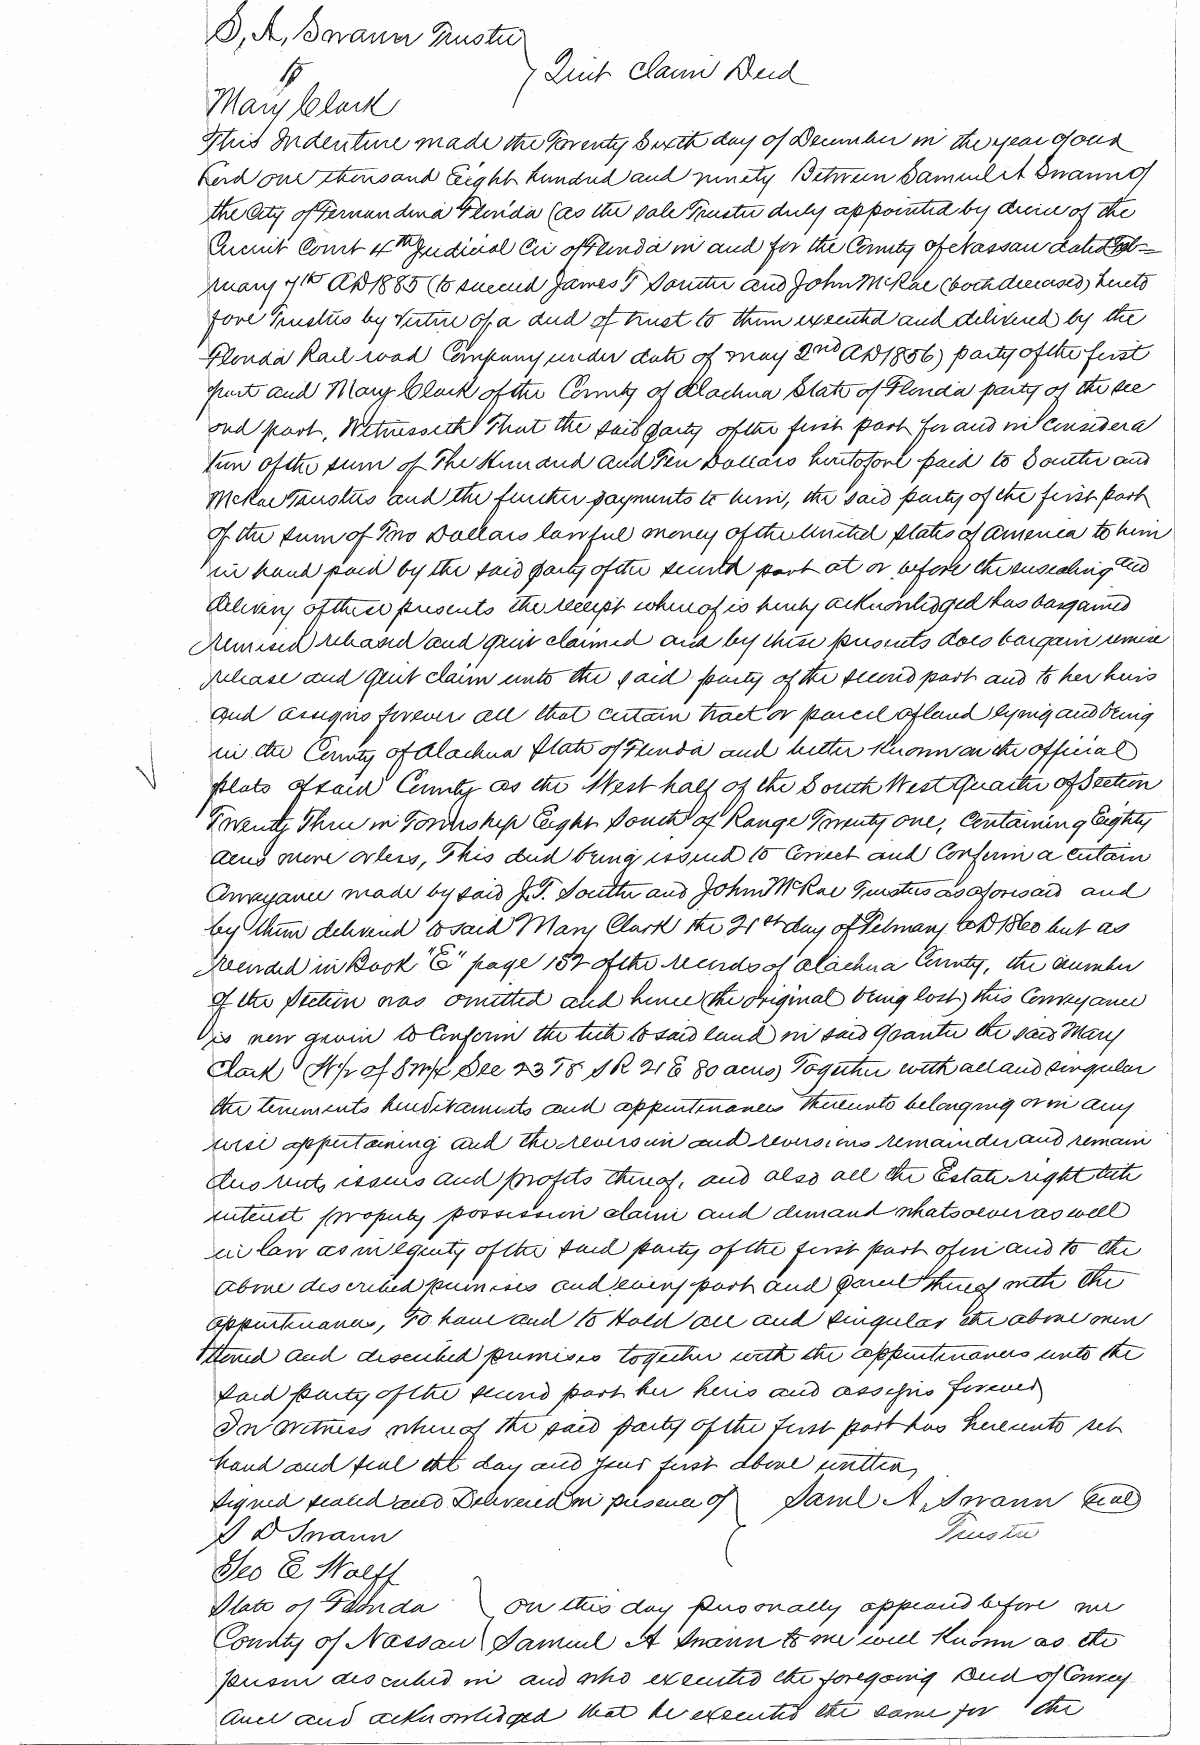 S, A, Swann Trustee
to
Quit Claim Deed
Mary Clark
This Indenture made the Twenty Sixth day of December in the year of our
Lord one thousand Eight hundred and ninety Between Samuel A Swann of
the City of Fernandina Florida (as the sole Trustee duly appointed by decree of the
Circuit Court 4th Judicial Cir of Florida in and for the County of Nassau dated Feb=
ruary 4th AD 1885 (to succeed James T Soutter and John McRae (both deceased) hereto
fore Trustees by virtue of a deed of trust to them executed and delivered by the
Florida Rail road Company under date of may 2nd AD 1856) party of the first
part and Mary Clark of the County of Alachua State of Florida party of the sec
ond part, Witnesseth That the said party of the first part for and in considera
tion of the sum of and Ten Dollars heretofore paid to Soutter and
McRae Trustees and the further payments to him, the said party of the first part
of the sum of Two Dollars lawful money of the United States of America to him
in hand paid by the said party of the second part at or before the ensealing and
delivery of these presents the receipt whereof is hereby acknowledged has bargained
remised released and quit claimed and by these presents does bargain remise
release and quit claim unto the said party of the second part and to her heirs
and assigns forever all that certain tract or parcel of land lying and being
in the County of Alachua State of Florida and better known on the official
plats of said County as the West half of the South West Quarter of Section
Twenty Three in Township Eight South of Range Twenty one, Containing Eighty
acres more or less, This deed being issued to Correct and Confirm a certain
Conveyance made by said J.T. Soutter and John McRae Trustees as aforesaid and
by them delivered to said Mary Clark the 21st day of February AD 1860 but as
recorded in Book "E" page 152 of the records of Alachua County, the number
of the Section was omitted and hence (the original being lost) this Conveyance
is now given to Confirm the title to said land in said grantee the said Mary
Clark (W/2 of SW/4 Sec 23 T8 S R 21 E 80 acres) Together with all and singular
the tenements hereditaments and appurtenances thereunto belonging or in any
wise appertaining and the reversion and reversions remainder and remain
ders rents issues and profits thereof, and also all the Estate right title
interest property possession claim and demand whatsoever as well
in law as in equity of the said party of the first part of in and to the
above described premises and every part and parcel thereof with the
appurtenances, To have and to Hold all and singular the above men
tioned and described premises together with the appurtenances unto the
said party of the second part her heirs and assigns forever
In Witness whereof the said party of the first part has hereunto set
hand and seal the day and year first above written,
Signed sealed and Delivered in presence of Saml A, Swann (seal)
S D Swann Trustee
Geo E Wolff
State of Florida On this day personally appeared before me
County of Nassau Samuel A Swann to me well known as the
person described in and who executed the foregoing Deed of Convey
ance and acknowledged that he executed the same for the